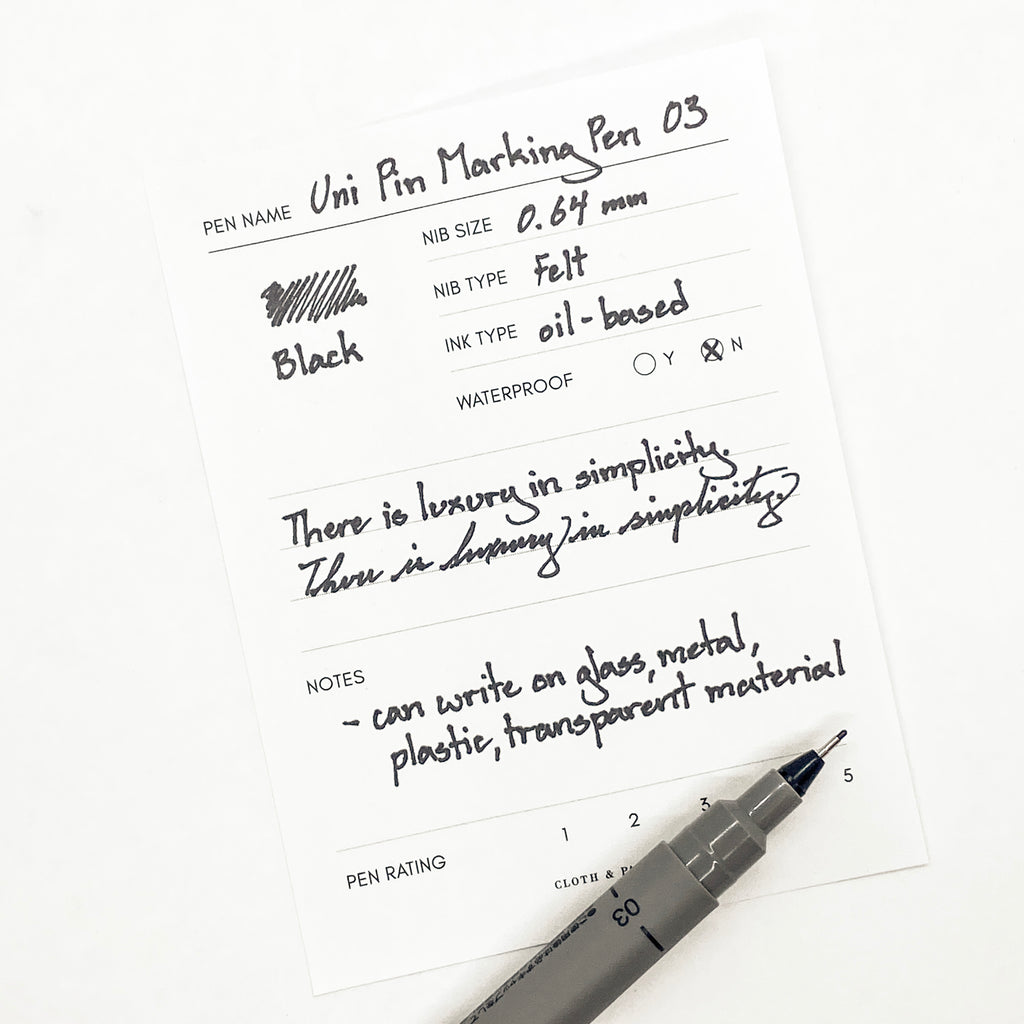 PEN NAME Uni Pin Marking Pen 03
NIB SIZE 0.64 mm
NIB TYPE Felt
Black
INK TYPE oil-based
WATERPROOF Y N
There is luxury in simplicity.
There is luxury in simplicity.
NOTES
- can write on glass, metal,
plastic, transparent material
PEN RATING 1 2 3 5
CLOTH &
03